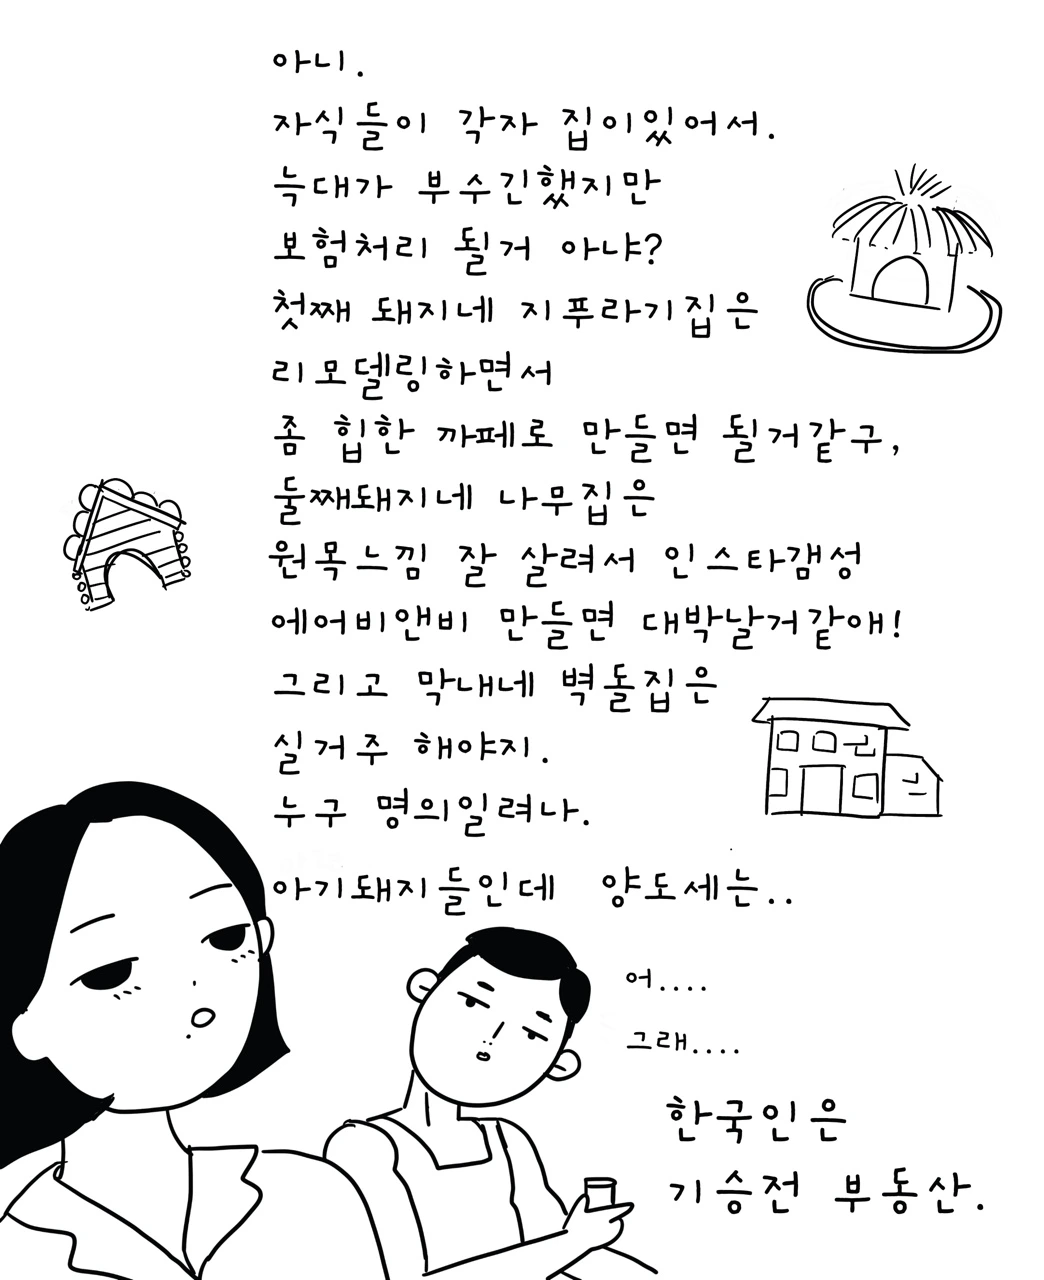 아니.
자식들이 각자 집이있어서.
늑대가 부수긴했지만
보험처리 될거 아냐?
첫째 돼지네 지푸라기집은
리모델링하면서
좀 힙한 까페로 만들면 될거같구,
둘째돼지네 나무집은
원목느낌 잘 살려서 인스타갬성
에어비앤비 만들면 대박날거같애!
그리고 막내네 벽돌집은
실거주 해야지.
누구 명의일려나.
아기돼지들인데 양도세는..
어....
그래....
한국인은
기승전 부동산.